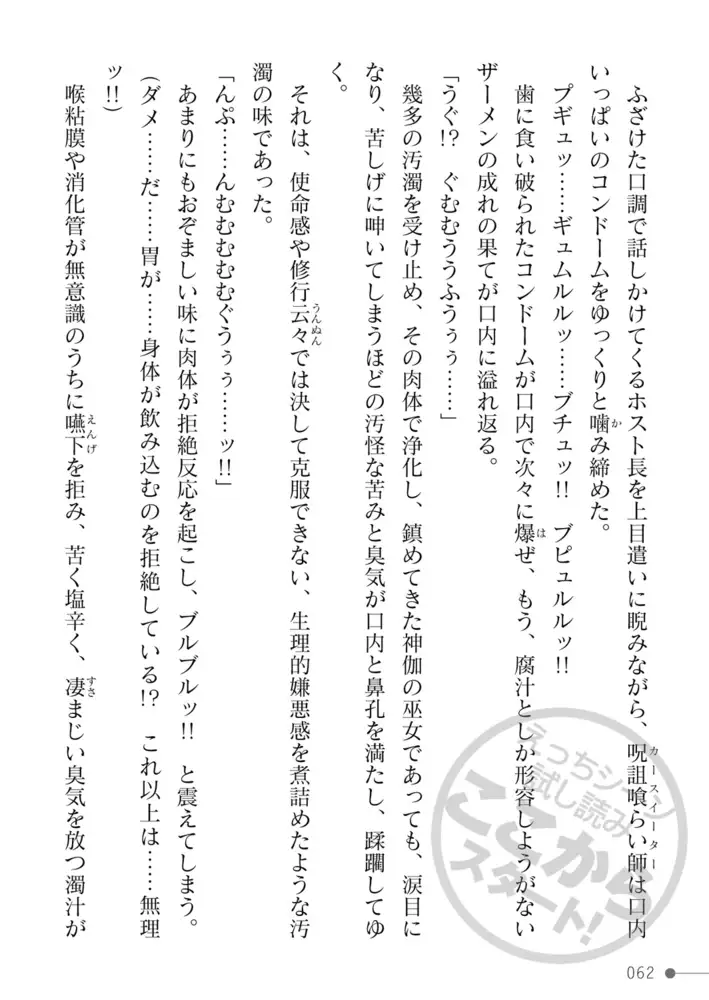 ふざけた口調で話しかけてくるホスト長を上目遣いに睨みながら、呪詛喰らい師は口内
カースイーター
いっぱいのコンドームをゆっくりと噛み締めた。
か
プギュッ……ギュムルルッ……ブチュッ!! ブピュルルッ!!
歯に食い破られたコンドームが口内で次々に爆ぜ、もう、腐汁としか形容しようがない
は
ザーメンの成れの果てが口内に溢れ返る。
「うぐ!? ぐむむううふうぅぅ……」
幾多の汚濁を受け止め、その肉体で浄化し、鎮めてきた神伽の巫女であっても、涙目に
なり、苦しげに呻いてしまうほどの汚怪な苦みと臭気が口内と鼻孔を満たし、蹂躙してゆ
く。
それは、使命感や修行云々では決して克服できない、生理的嫌悪感を煮詰めたような汚
うんぬん
濁の味であった。
「んぷ……んむむむむむぐうぅぅ……ッ!!」
あまりにもおぞましい味に肉体が拒絶反応を起こし、ブルブルッ!! と震えてしまう。
(ダメ……だ……胃が……身体が飲み込むのを拒絶している!? これ以上は……無理
ッ!!)
喉粘膜や消化管が無意識のうちに嚥下を拒み、苦く塩辛く、凄まじい臭気を放つ濁汁が
えんげ
すさ
えっちシーン
試し読み
ここから
スタート!
062